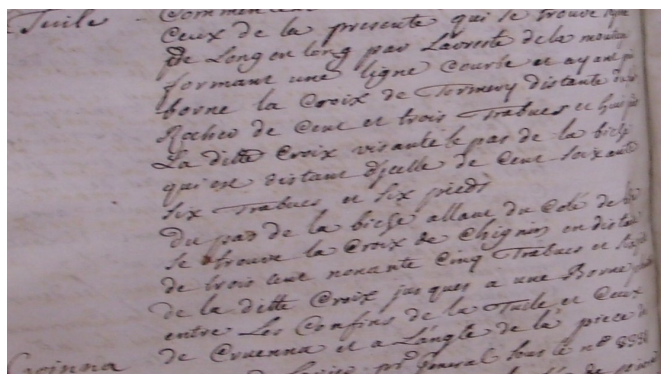 Tuile
Commen
Ceux de la presente qui se trouve
de Long en long par Lareste de la
formant une ligne Courbe et ayant
borne la Croix de Tormery distante du
Rocher de Cent et trois Trabucs et huit
La ditte Croix visante le pas de la biche
qui est distant d'jcelle de Cent soixante
six Trabucs et six pieds
du pas de la biche allant du Coté de
se trouve la Croix de Chignin en distance
de trois Cent nonante Cinq Trabucs et
de la ditte Croix jusques a une Borne
entre Les Confins de la Tuile et Ceux
de Cruenna et a L'angle de la piece
general sous le n.º